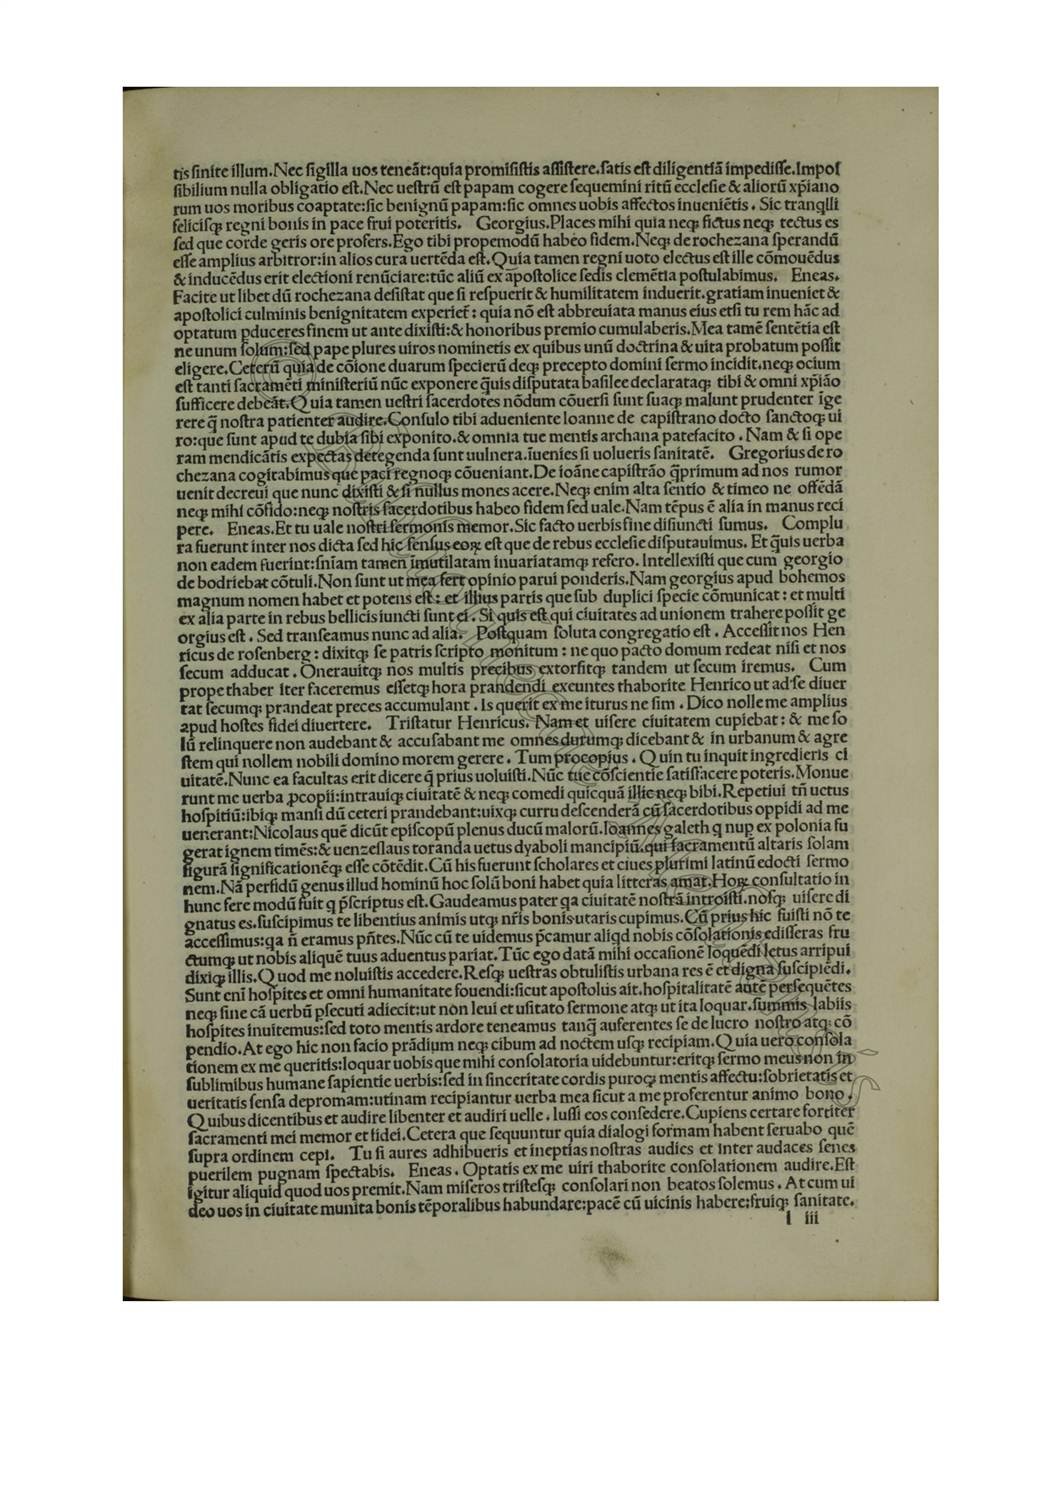 tis sinite illum. Nec sigilla uos teneāt: quia promisistis assistere. satis est diligentiā impedisse. Impos
sibilium nulla obligatio est. Nec uestrū est papam cogere sequemini ritū ecclesie & aliorū xp̄iano
rum uos moribus coaptate: sic benignū papam: sic omnes uobis affectos inueniētis. Sic tranqlli
felicisq; regni bonis in pace frui poteritis. Georgius. Places mihi quia neq; fictus neq; tectus es
sed que corde geris ore profers. Ego tibi propemodū habeo fidem. Neq; de rochezana sperandū
esse amplius arbitror: in alios cura uertēda est. Quia tamen regni uoto electus est ille cōmouēdus
& inducēdus erit electioni renūciare: tūc aliū ex apostolice sedis clemētia postulabimus. Eneas.
Facite ut libet dū rochezana desistat que si respuerit & humilitatem induerit. gratiam inueniet &
apostolici culminis benignitatem experiet̄: quia nō est abbreuiata manus eius etsi tu rem hāc ad
optatum ꝑduceres finem ut ante dixisti: & honoribus premio cumulaberis. Mea tamē sentētia est
ne unum solum: sed pape plures uiros nominetis ex quibus unū doctrina & uita probatum possit
eligere. Ceterū quia de cōione duarum specierū deq; precepto domini sermo incidit. neq; ocium
est tanti sacramēti ministeriū nūc exponere q̄uis disputata basilee declarataq; tibi & omni xp̄iāo
sufficere debeāt. Quia tamen uestri sacerdotes nōdum cōuersi sunt suaq; malunt prudenter ige
rere q̄ nostra patienter audire. Consulo tibi adueniente Ioanne de capistrano docto sanctoq; ui
ro: que sunt apud te dubia sibi exponito. & omnia tue mentis archana patefacito. Nam & si ope
ram mendicātis expectas detegenda sunt uulnera. īuenies si uolueris sanitatē. Gregorius de ro
chezana cogitabimus que paci regnoq; cōueniant. De ioāne capistrāo q̄primum ad nos rumor
uenit decreui que nunc dixisti & si nullus mones acere. Neq; enim alta sentio & timeo ne offēdā
neq; mihi cōfido: neq; nostris sacerdotibus habeo fidem sed uale. Nam tēpus ē alia in manus reci
pere. Eneas. Et tu uale nostri sermonis memor. Sic facto uerbis fine disiuncti sumus. Complu
ra fuerunt inter nos dicta sed hic sensus eoꝝ est que de rebus ecclesie disputauimus. Et q̄uis uerba
non eadem fuerint: sn̄iam tamen īmutilatam inuariatamq; refero. Intellexisti que cum georgio
de bodriebat cōtuli. Non sunt ut mea fert opinio parui ponderis. Nam georgius apud bohemos
magnum nomen habet et potens est: et illius partis que sub duplici specie cōmunicat: et multi
ex alia parte in rebus bellicis iuncti sunt ei. Si quis est qui ciuitates ad unionem trahere possit ge
orgius est. Sed transeamus nunc ad alia. Postquam soluta congregatio est. Accessit nos Hen
ricus de rosenberg: dixitq; se patris scripto monitum: ne quo pacto domum redeat nisi et nos
secum adducat. Onerauitq; nos multis precibus extorsitq; tandem ut secum iremus. Cum
prope thaber iter faceremus essetq; hora prandendi exeuntes thaborite Henrico ut ad se diuer
tat secumq; prandeat preces accumulant. Is querit ex me iturus ne sim. Dico nolle me amplius
apud hostes fidei diuertere. Tristatur Henricus. Nam et uisere ciuitatem cupiebat: & me so
lū relinquere non audebant & accusabant me omnes durumq; dicebant & in urbanum & agre
stem qui nollem nobili domino morem gerere. Tum procopius. Quin tu inquit ingredieris ci
uitatē. Nunc ea facultas erit dicere q̄ prius uoluisti. Nūc tue cōscientie satisfacere poteris. Monue
runt me uerba ꝓcopii: intrauiq; ciuitatē & neq; comedi quicquā illic neq; bibi. Repetiui tn̄ uetus
hospitiū: ibiq; mansi dū ceteri prandebant: uixq; curru descenderā cū sacerdotibus oppidi ad me
uenerant: Nicolaus quē dicūt episcopū plenus ducū malorū. Ioannes galeth q nup ex polonia fu
gerat ignem timēs: & uenzeslaus toranda uetus dyaboli mancipiū. qui sacramentū altaris solam
figurā significationēq; esse cōtēdit. Cū his fuerunt scholares et ciues plurimi latinū edocti sermo
nem. Nā perfidū genus illud hominū hoc solū boni habet quia litteras amat. Hoꝝ consultatio in
hunc fere modū fuit q p̄scriptus est. Gaudeamus pater qa ciuitatē nostrā introisti. nosq; uisere di
gnatus es. suscipimus te libentius animis utq; nr̄is bonis utaris cupimus. Cū prius hic fuisti nō te
accessimus: qa n̄ eramus pn̄tes. Nūc cū te uidemus p̄camur aliqd nobis cōsolationis edisseras fru
ctumq; ut nobis aliquē tuus aduentus pariat. Tūc ego datā mihi occasionē loquēdi letus arripui
dixiq; illis. Quod me noluistis accedere. Resq; uestras obtulistis urbana res ē et digna suscipiēdi.
Sunt enī hospites et omni humanitate fouendi: sicut apostolus ait. hospitalitatē autē persequētes
neq; sine cā uerbū ꝓsecuti adiecit: ut non leui et usitato sermone atq; ut ita loquar. summis labiis
hospites inuitemus: sed toto mentis ardore teneamus tanq̄ auferentes se de lucro nostro atq; cō
pendio. At ego hic non facio prādium neq; cibum ad noctem usq; recipiam. Quia uero consola
tionem ex me queritis: loquar uobis que mihi consolatoria uidebuntur: eritq; sermo meus non in
sublimibus humane sapientie uerbis: sed in sinceritate cordis puroq; mentis affectu: sobrietatis et
ueritatis sensa depromam: utinam recipiantur uerba mea sicut a me proferentur animo bono.
Quibus dicentibus et audire libenter et audiri uelle. Iussi eos consedere. Cupiens certare fortiter
sacramenti mei memor et fidei. Cetera que sequuntur quia dialogi formam habent seruabo quē
supra ordinem cepi. Tu si aures adhibueris et ineptias nostras audies et inter audaces senes
puerilem pugnam spectabis. Eneas. Optatis ex me uiri thaborite consolationem audire. Est
igitur aliquid quod uos premit. Nam miseros tristesq; consolari non beatos solemus. At cum ui
deo uos in ciuitate munita bonis tēporalibus habundare: pacē cū uicinis habere: fruiq; sanitate.
l iii